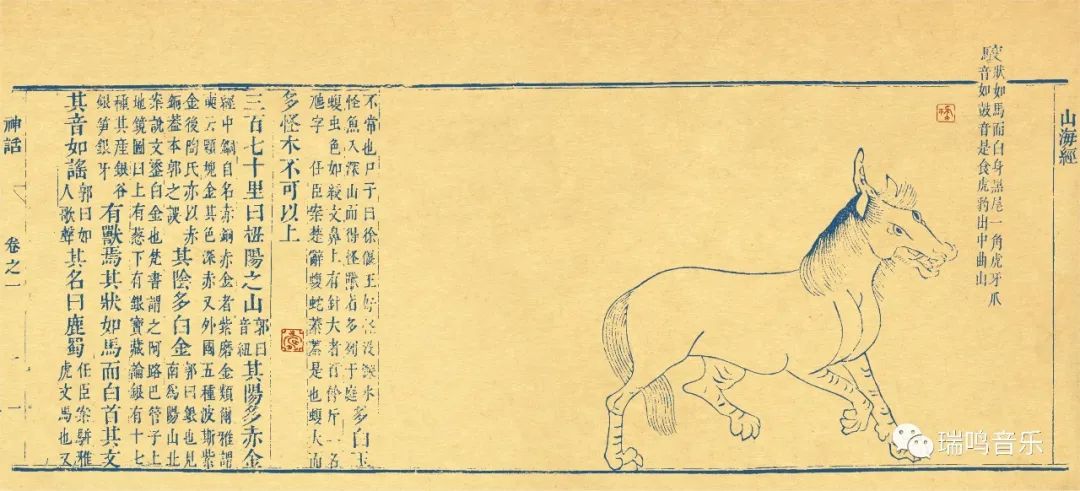 山海經
駮
狀如馬而白身黑尾一角虎牙爪
音如鼓音是食虎豹出中曲山
不常也尸子曰徐偃王好怪沒深水
怪魚入深山而得怪獸者多列于庭
多白玉
蝮虫色如綬文鼻上有針大者百餘斤一名
虺字 任臣案楚辭蝮蛇蓁蓁是也蝮大而
多怪木不可以上
三百七十里曰杻陽之山
郭曰
音紐
其陽多赤金
經中銅自名赤銅赤金者紫磨金類爾雅謂
金其色深赤又外國五種波斯紫
金後陶氏亦以赤
銅蓋本郭之誤
其陰多白金
郭曰銀也見
南爲陽山北
案說文鋈白金也梵書謂之阿路巴管子上
地鏡圖曰上有葱下有銀寶藏論銀有十七
種其產銀谷
銀笋銀牙
有獸焉其狀如馬而白首其文
其音如謠
郭曰如
人歌聲
其名曰鹿蜀
任臣案駢雅
虎文馬也又
神話
卷之一
一
瑞鸣音乐